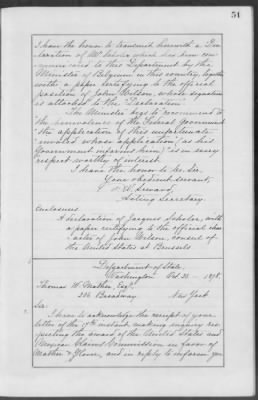 51
I have the honor to transmit herewith a De-
claration of Mr
which has been com-
municated to this Department by the
Minister of Belgium in this country, together
with a paper certifying to the official
position of John Wilson, whose signature
is attached to the "Declaration".
The Minister begs to recommend to
the benevolence of the Federal government
"the application of this unfortunate
invalid whose application" (as this
Government informs him) "is in every
respect worthy of interest.
I have the honor to be, Sir,
Your obedient servant,
F. W. Seward,
Acting Secretary.
Enclosures
A declaration of Jacques Scholer, with
a paper certifying to the official char-
acter of John Wilson, consul of
the United States at Brussels
Department of State,
Washington Oct. 1878.
Thomas W. Mather, Esq.
Broadway
New York
Sir:
I have to acknowledge the receipt of your
letter of the instant, making inquiry res-
pecting the award of the United States and
Mexican Claims Commission in favor of
Mather & Glover, and in reply to inform you